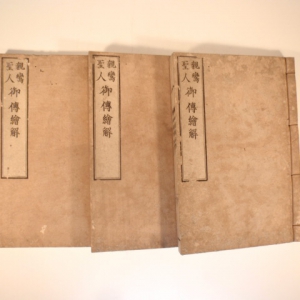 親鸞聖人御傳繪解
親鸞聖人御傳繪解
親鸞聖人御傳繪解